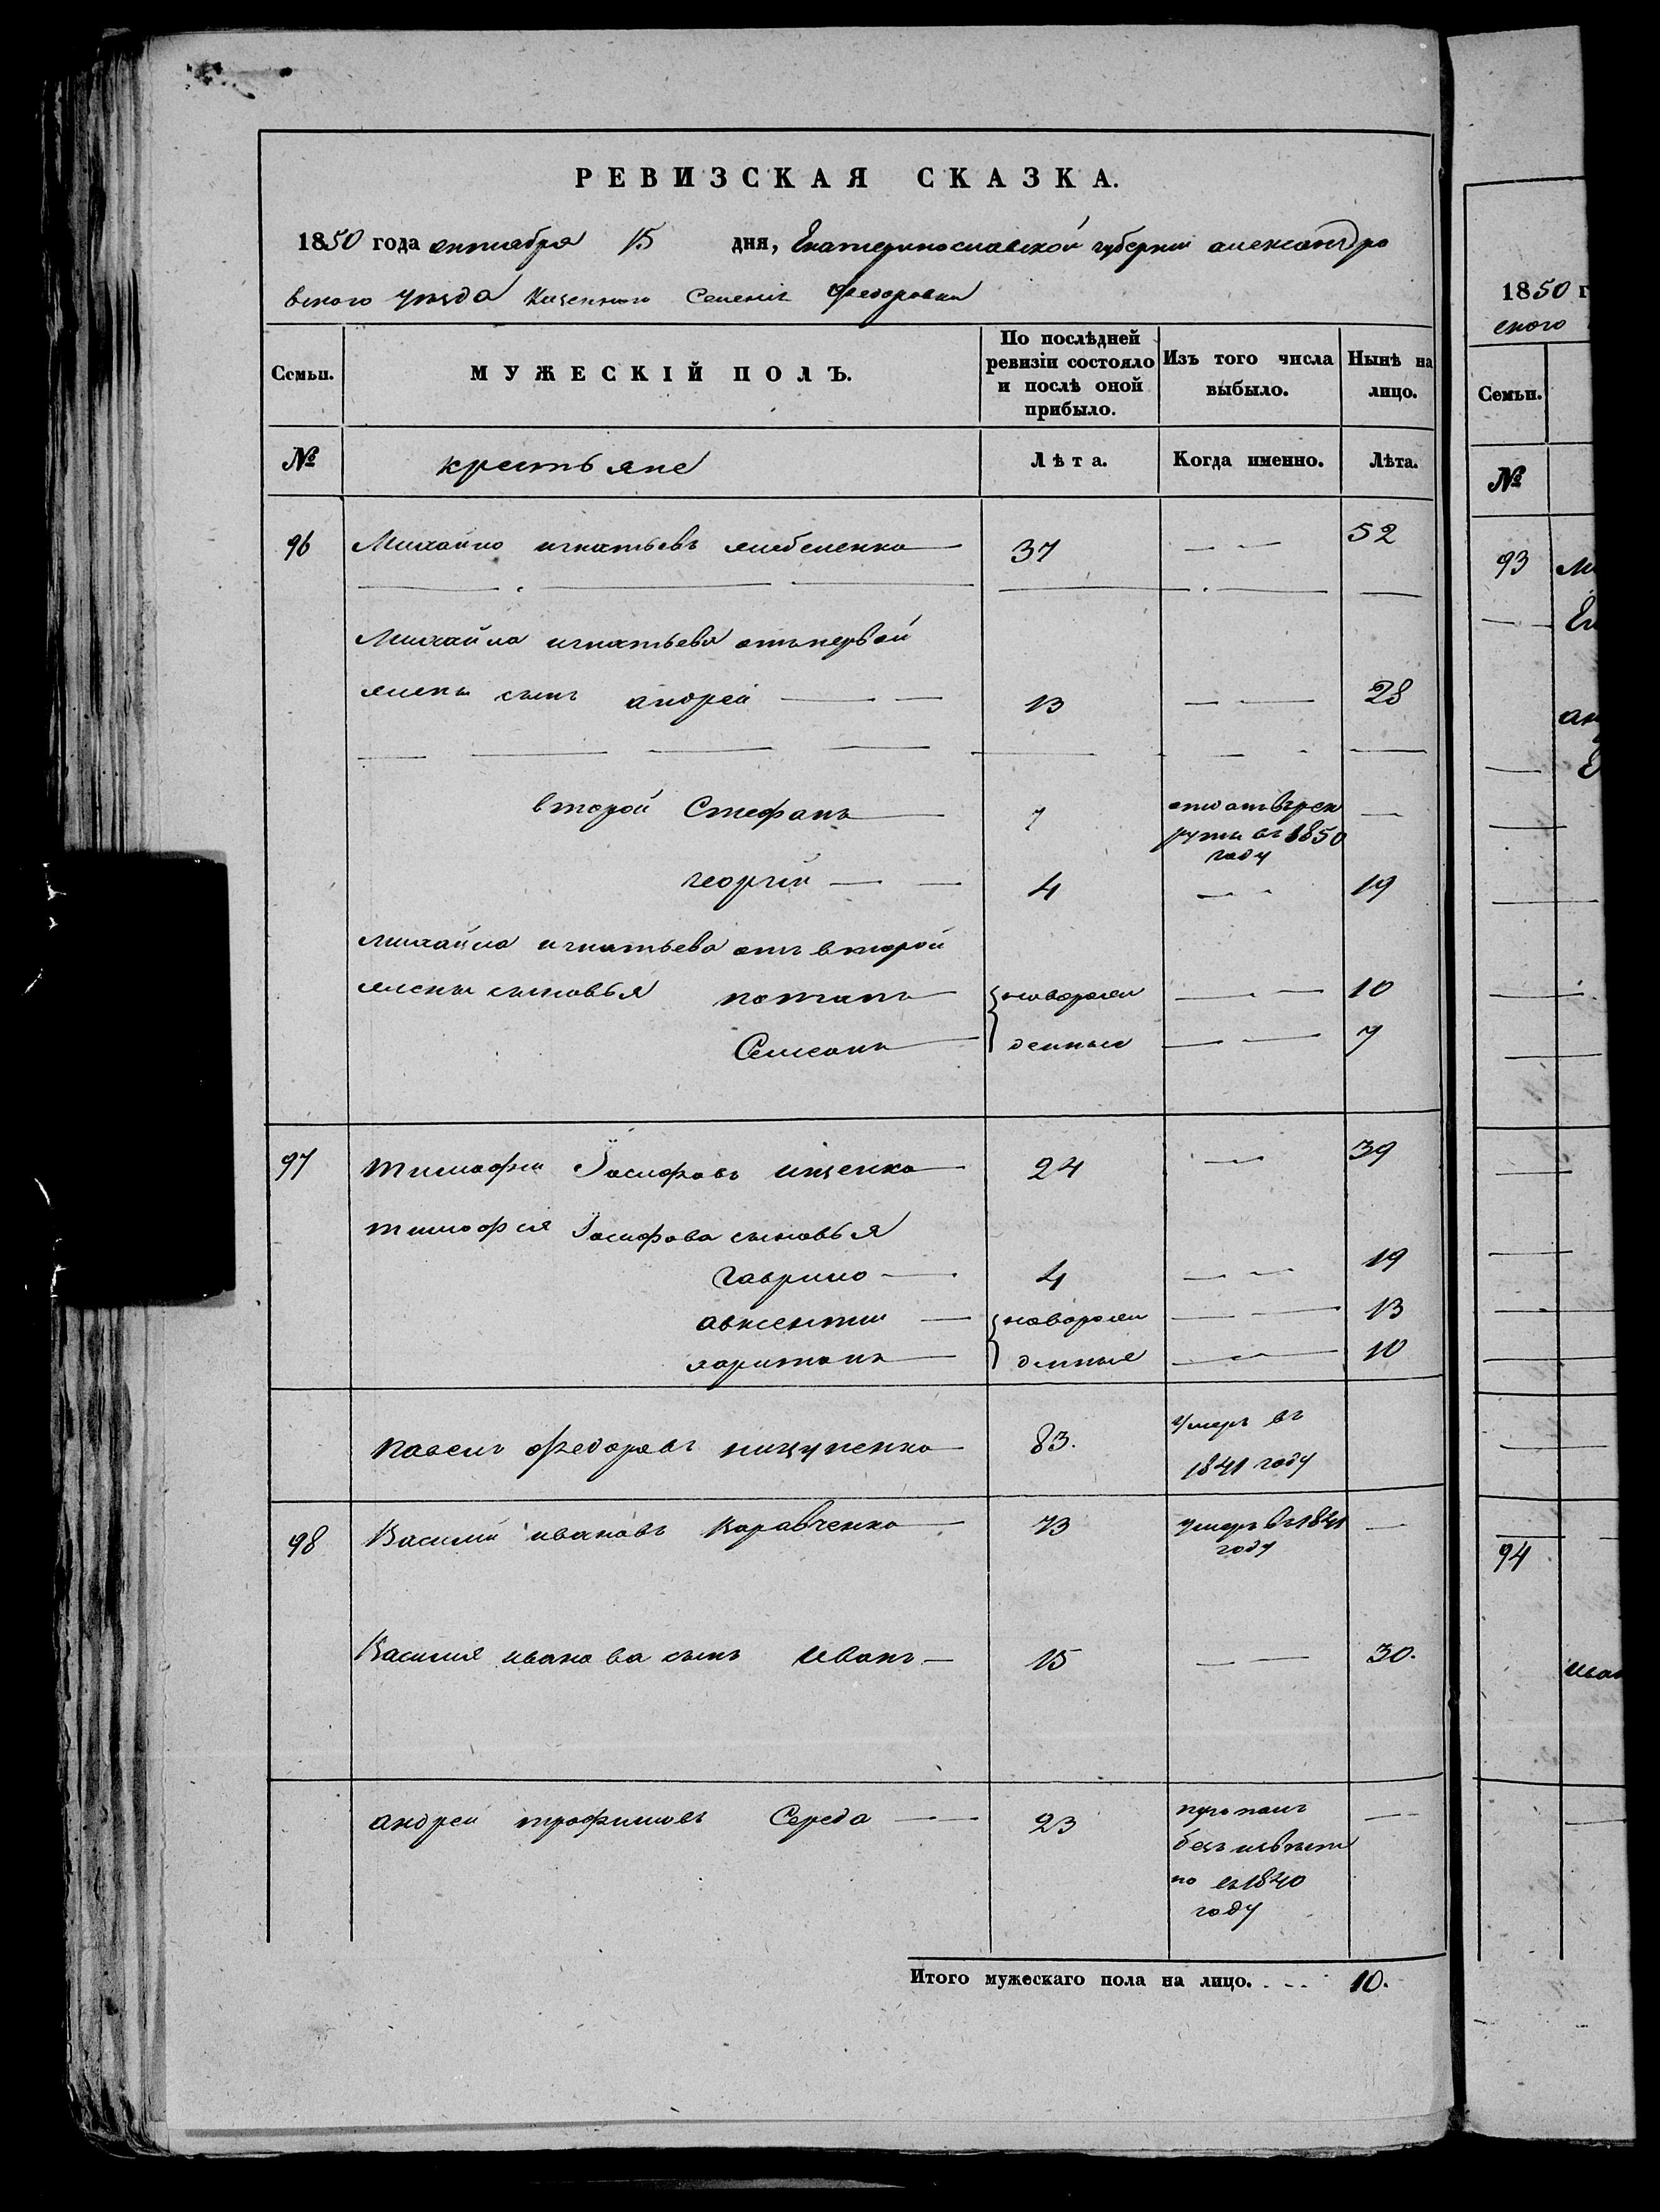 РЕВИЗСКАЯ СКАЗКА.
1850 года октября 15 дня, Екатеринославской губернии александро
вского уезда Казенного Селения Федоровки
Семьи. МУЖЕСКІЙ ПОЛЪ. По послѣдней ревизіи состояло и послѣ оной прибыло. Изъ того числа выбыло. Нынѣ на лицо.
№ крестьяне Лѣта. Когда именно. Лѣта.
96 Михайло игнатьевъ 37 — — 52
Михайла игнатьева отъ первой
жены сынъ андрей — — 13 — — 28
второй Стефанъ — 7 отдатъ врек
руты въ 1850
году —
георгий — — 4 — — 19
михайла игнатьева отъ второй
жены сыновья потапъ — новорож — — 10
Симеонъ — денные — — 7
97 тимофей Іосифовъ ищенко — 24 — — 39
тимофея Іосифова сыновья
гаврило — 4 — — 19
авксентий — новорож — — 13
харитонъ — денные — — 10
павелъ федоровъ — 83. умеръ въ
1841 году
98 Василий ивановъ Коравченко — 73 умеръ въ 1841
году —
Василия иванова сынъ иванъ — 15 — — 30.
андрей трофимовъ Середа — — 23 пропалъ
безъ извѣст
но въ 1840
году —
Итого мужескаго пола на лицо. . . . 10.
1850 г
ского
Семьи.
№
93
94